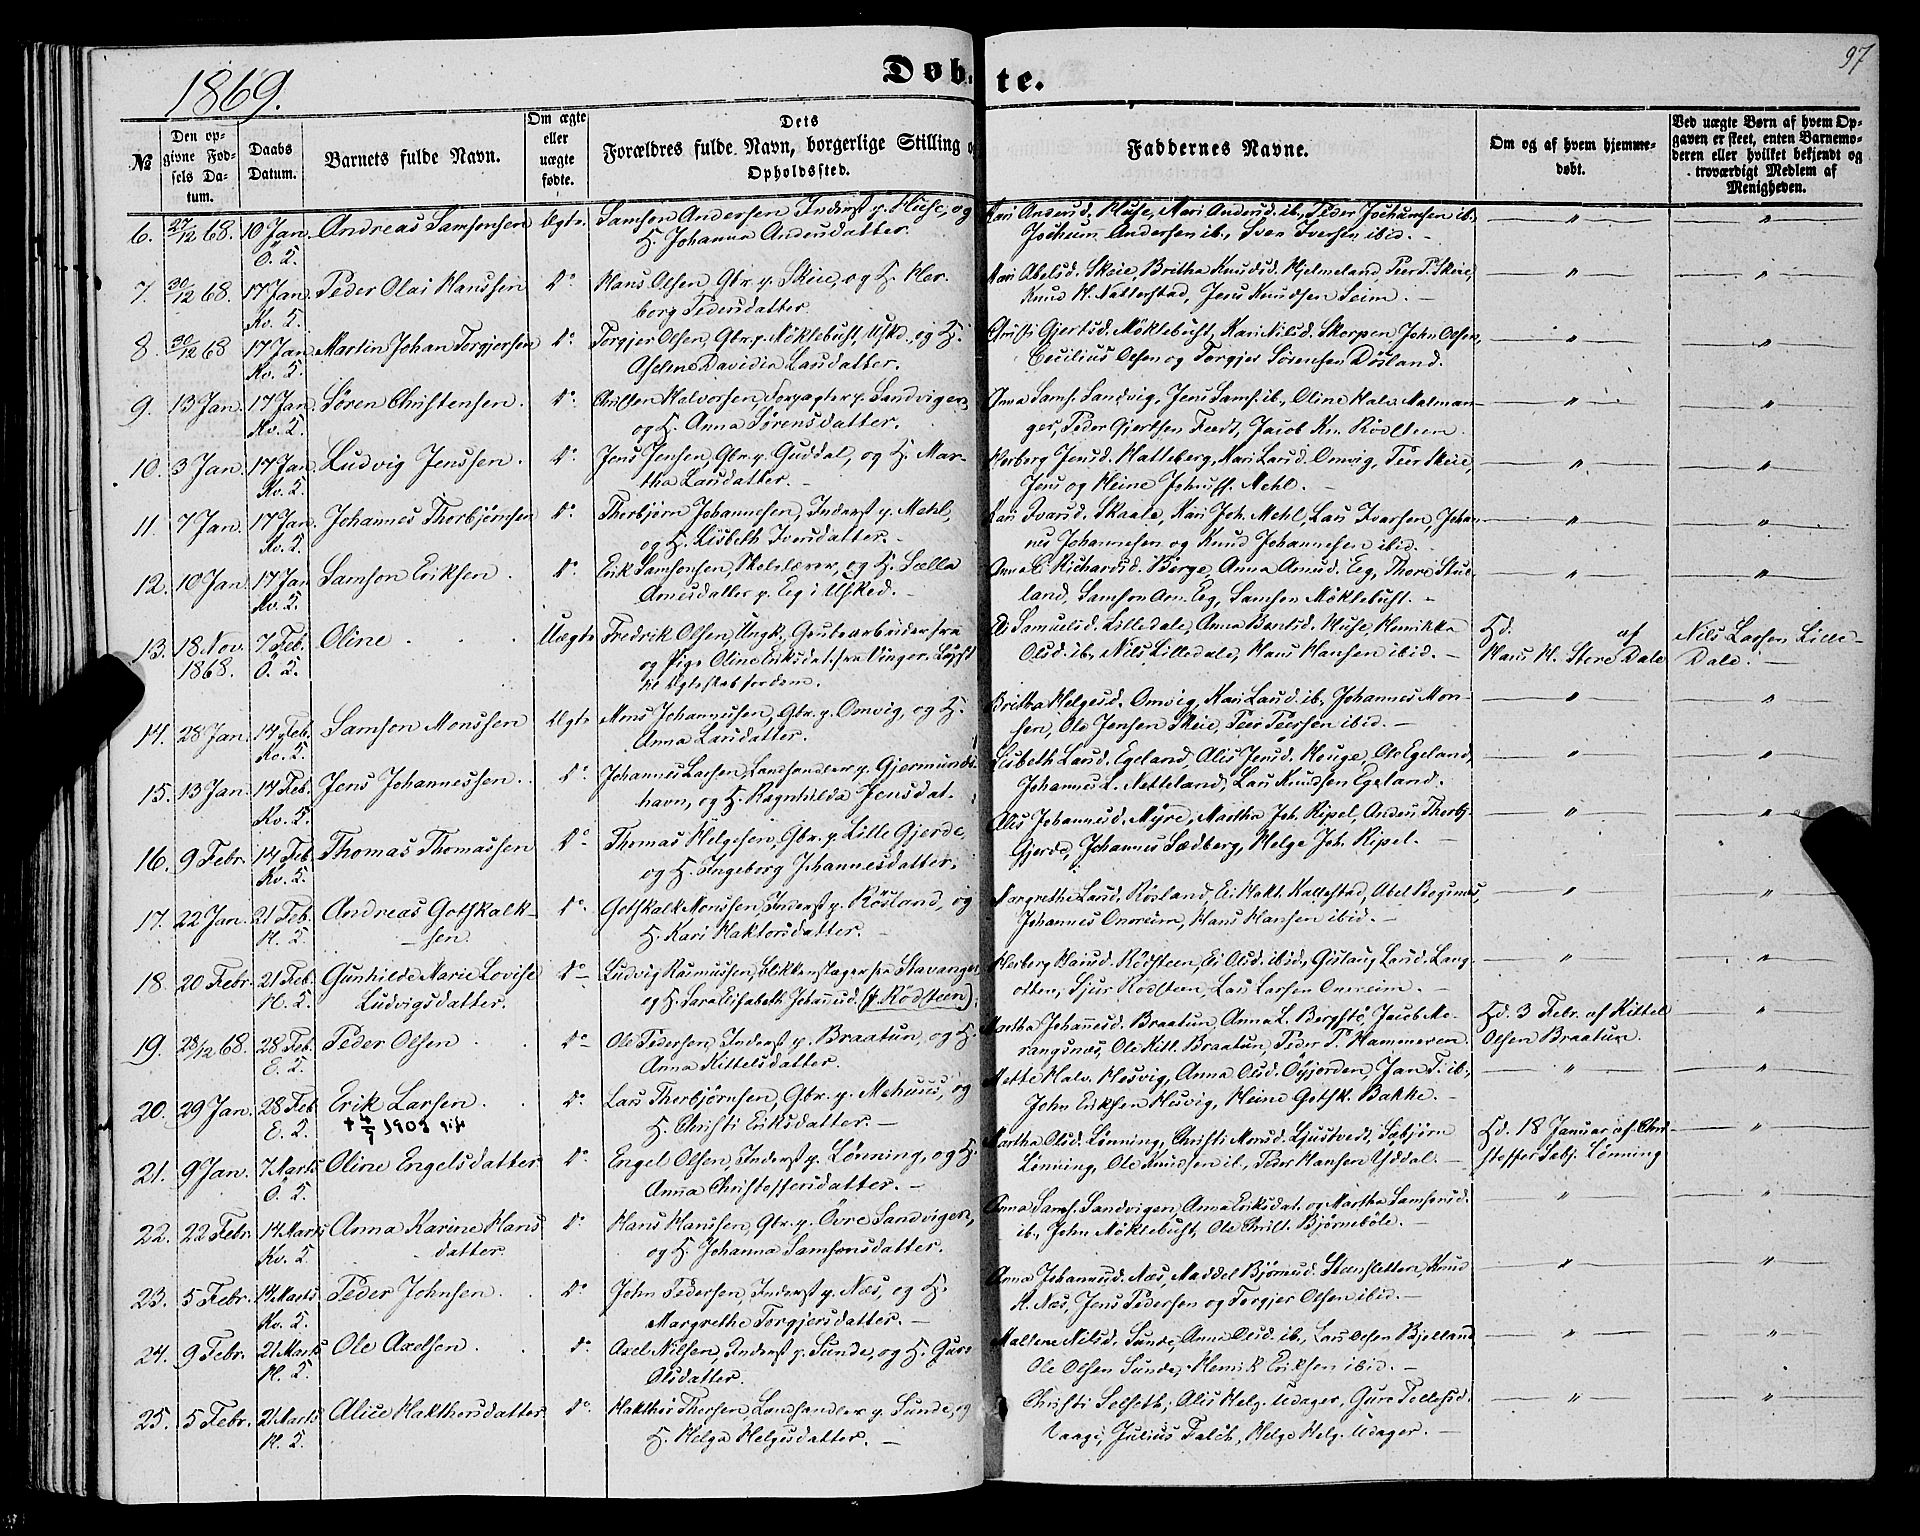 97
1869.
Døbte.
№
Den opgivne Fødsels Datum.
Daabs Datum.
Barnets fulde Navn.
Om ægte eller uægte fødte.
Dets Forældres fulde Navn, borgerlige Stilling og Opholdssted.
Faddernes Navne.
Om og af hvem hjemmedøbt.
Ved uægte Børn af hvem Opgaven er skeet, enten Barnemoderen eller hvilket bekjendt og troværdigt Medlem af Menigheden.
6. 27/12 68. 10 Jan. Ö. 2. Andreas Samsonsen Ægte. Samson Andersen Inderst p. Huse, og
H. Johanna Andersdatter.
Kari Andersd. Huse, Mari Andersd. ib., Peder Jochumsen ib.
Jochum Andersen ib., Sven Iversen ibid. — " "
7. 30/12 68. 17 Jan. Kv. 2. Peder Olai Hanssen do Hans Olsen, Gbr. p. Skeie, og H. Her-
borg Pedersdatter.
Kari Abelsd. Skeie, Britha Knudsd. Hjelmeland, Peer P. Skeie,
Knud H. Natterstad, Jens Knudsen Seim. — " "
8. 30/12 68 17 Jan. Kv. 2. Martin Johan Torgjersen do Torgjer Olsen, Gbr. p. Möklebust, Uskd. og H.
Oseline Davidia Larsdatter.
Christi Gjertsd. Möklebust, Kari Nilsd. Skorpen, John Olsen,
Cecilius Olsen og Torgjer Sörensen Dösland. " "
9. 13 Jan. 17 Jan. Kv. 2. Sören Christensen. do Christen Halvorsen, Forpagter p. Sandvigen,
og H. Anna Sörensdatter.
Anna Sams. Sandvig, Jens Sams. ib., Oline Halv. Malman-
ger, Peder Gjertsen Tvedt, Jacob Kn. Rödsteen. " "
10. 3 Jan. 17 Jan. Kv. 2. Ludvig Jenssen. do Jens Jensen, Gbr. p. Guddal, og H. Mar-
tha Larsdatter. —
Herborg Jensd. Hatteberg, Kari Larsd. Omvig, Peer Skeie,
Jens og Heine Johnss. Mehl. — " "
11. 7 Jan. 17 Jan. Kv. 2. Johannes Thorbjörnsen do Thorbjörn Johannesen, Inderst p. Mehl,
og H. Lisbeth Iversdatter. —
Kari Ivarsd. Skaale, Kari Joh. Mehl, Lars Ivarsen, Johan-
nes Johannesen og Knud Johannesen ibid. — " "
12. 10 Jan. 17 Jan Kv. 2. Samson Eriksen. do Erik Samsonsen, Skolelærer, og H. Sælla
Arnesdatter p. Eeg i Usked. —
Anna E. Richardsd. Berge, Anna Arnesd. Eeg, Thore Stus-
land, Samson Arn. Eeg, Samson Möklebust. — " "
13. 18 Nov. 1868. 7 Feb. Ö. 2. Oline Uægte Fredrik Olsen, Ungk., Grubearbeider fra
og Pige Oline Eriksdat. fra Vinger. Lyst
til Ægteskab fordem.
Samuelsd. Lilledale, Anna Bertsd. Huse, Henrikka
Olsd. ib., Nils Lilledale, Hans Hansen ibid. — Hd. af
Hans H. Store Dale Nils Larsen Lille
Dale. —
14. 28 Jan. 14 Feb. Kv. 2. Samson Monssen Ægte Mons Johannessen, Gbr. p. Omvig, og H.
Anna Larsdatter.
Britha Helgesd. Omvig, Kari Larsd. ib., Johannes Mon-
sen, Ole Jensen Skeie, Peer Peersen ibid. — " "
15. 13 Jan. 14 Feb. Kv. 2. Jens Johannessen. do Johannes Larsen, Landhandler p. Gjermunds-
havn, og H. Ragnhilda Jensdat.
Lisbeth Larsd. Egeland, Alis Jensd. Houge, Ole Egeland,
Johannes L. Netteland, Lars Knudsen Egeland. " "
16. 9 Febr. 14 Feb Kv. 2. Thomas Thomassen do Thomas Helgesen, Gbr. p. Lille Gjerde,
og H. Ingeborg Johannesdatter.
Alis Johannesd. Myre, Martha Joh. Ripel, Anders Thorbj.
Gjerde, Johannes Sædberg, Helge Joh. Ripel. — " "
17. 22 Jan. 21 Feb. H. 2. Andreas Gotskalk-
sen. do Gotskalk Monssen, Inderst p. Rösland, og
H. Kari Haktorsdatter. —
Margrethe Larsd. Rösland, Ei Hakt. Kallestad, Abel Bogsnes,
Johannes Onereim, Hans Hansen ibid. — " "
18. 20 Febr. 21 Feb. H. 2. Gunhilde Marie Lovise
Ludvigsdatter. do Ludvig Rasmussen, Blikkenslager fra Stavanger,
og H. Sara Elisabeth Johannesd. (p. Rödsteen).
Herborg Hansd. Rödsteen, Ei Olsd. ibid., Gülaug Larsd. Lang-
otten, Sjur Rödsteen, Lars Larsen Onereim. — " "
19. 28/12 68. 28 Feb. E. 2. Peder Olsen. do Ole Pedersen, Inderst p. Braatun, og H.
Anna Kittelsdatter.
Martha Johannesd. Braatun, Anna L. Bergstö, Jacob Me-
rangsnæs, Ole Kitl. Braatun, Peder P. Hammeren. Hd. 3 Febr. af Kittel
Olsen Braatun. "
20. 29 Jan. 28 Feb E. 2. Erik Larsen.
Lars Thorbjörnsen, Gbr. p. Mehuus, og
H. Christi Eriksdatter. —
Mette Halv. Hesvig, Anna Olsd. Öyjorden, Jan T. ib.,
John Eriksen Hesvig, Heine Gotsk. Bakke. — " "
21. 9 Jan. 7 Marts Ö. 2. Oline Engelsdatter do Engel Olsen, Inderst p. Lönning, og H.
Anna Christoffersdatter. —
Martha Olsd. Lönning, Christi Monsd. Ljustvedt, Sæbjörn
Lönning, Ole Knudsen ib., Peder Hansen Yddal. — Hd. 18 Januar af Chri-
stoffer Sæbj. Lönning "
22. 22 Febr. 14 Marts Kv. 2. Anna Karine Hans
datter. do Hans Hanssen, Gbr. p. Övre Sandvigen,
og H. Johanna Samsonsdatter.
Anna Sams. Sandvigen, Anna Eriksdat. og Martha Samsonsd.
ib., John Möklebust, Ole Christ. Björneböle. — " "
23. 5 Febr. 14 Marts Kv. 2. Peder Johnsen. do John Pedersen, Inderst p. Næs, og H.
Margrethe Torgjersdatter. —
Anna Johannesd. Næs, Maddel Björnsd. Steensletten, Knud
H. Næs, Jens Pedersen og Torgjer Olsen ibid. — " "
24. 9 Febr. 21 Marts H. 2. Ole Axelsen. do Axel Nilsen, Inderst p. Sunde, og H. Guro
Olsdatter.
Maltene Nilsd. Sunde, Anna Olsd. ib., Lars Olsen Bjelland,
Ole Olsen Sunde, Henrik Eriksen ibid. — " "
25. 5 Febr. 21 Marts H. 2. Alice Hakthorsdatter do Hakthor Thorsen, Landhandler p. Sunde, og
H. Helga Helgesdatter. —
Christi Selseth, Alis Helg. Udager, Guro Tollefsd.
Vaage, Julius Falch, Helge Helg. Udager. — " "